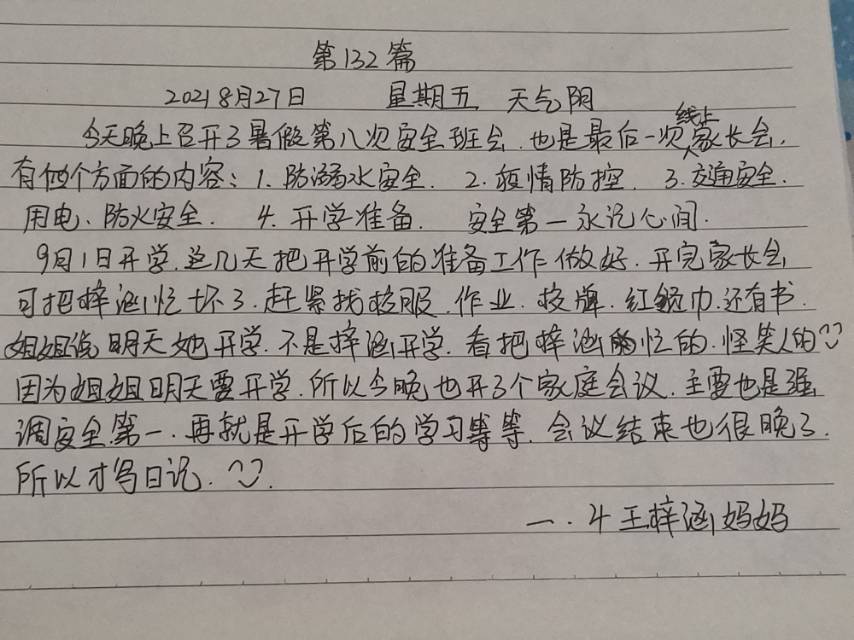 第132篇
2021 8月27日 星期五 天气阴
今天晚上召开了暑假第八次安全班会.也是最后一次线上家长会.
有四个方面的内容:1.防溺水安全. 2.疫情防控. 3.交通安全.
用电、防火安全. 4.开学准备. 安全第一永记心间.
9月1日开学.这几天把开学前的准备工作做好.开完家长会
可把梓涵忙坏了.赶紧找校服.作业.校牌.红领巾.还有书.
姐姐说明天她开学.不是梓涵开学.看把梓涵忙的.怪笑人的
因为姐姐明天要开学.所以今晚也开了个家庭会议.主要也是强
调安全第一.再就是开学后的学习等等.会议结束也很晚了.
所以才写日记.
一.4王梓涵妈妈